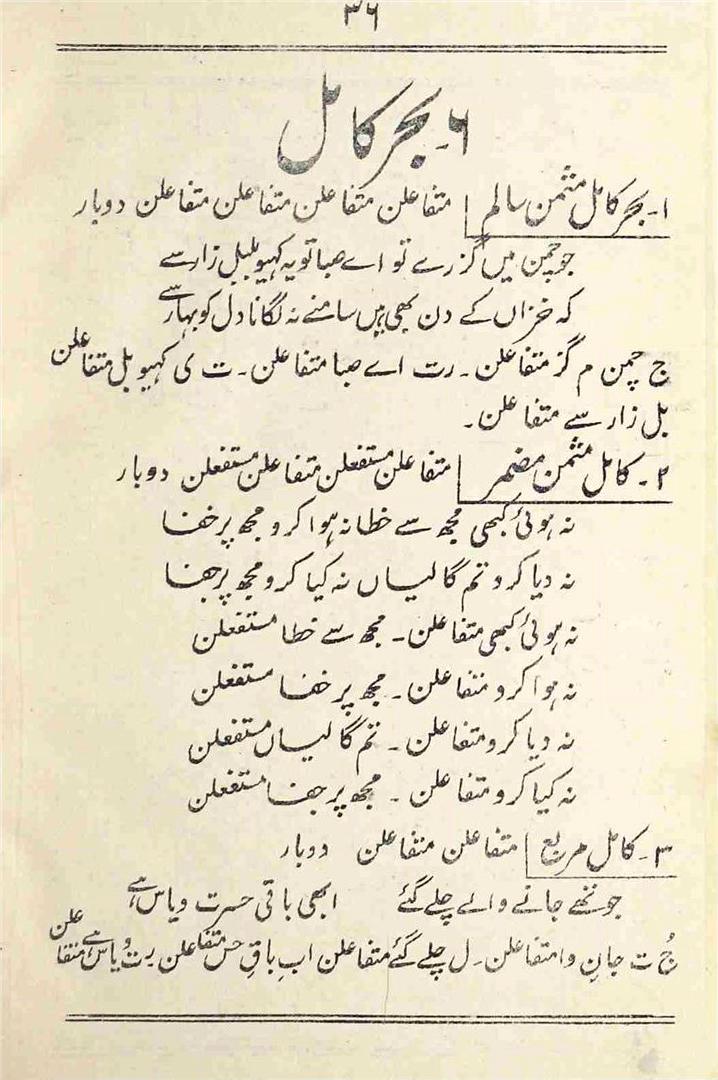 ۳۶
۶۔ بحر کامل
۱۔ بحر کامل مثمن سالم متفاعلن متفاعلن متفاعلن متفاعلن دوبار
جو چمن میں گزرے تو اے صبا تو یہ کہیو بلبل زار سے
کہ خزاں کے دن بھی ہیں سامنے نہ لگانا دل کو بہار سے
ج چمن م گز متفاعلن۔ رت اے صبا متفاعلن۔ ت ی کہیو بل متفاعلن
بل زار سے متفاعلن۔
۲۔ کامل مثمن مضمر متفاعلن مستفعلن متفاعلن مستفعلن دوبار
نہ ہوئی کبھی مجھ سے خطا نہ ہوا کرو مجھ پر خفا
نہ دیا کرو تم گالیاں نہ کیا کرو مجھ پر جفا
نہ ہوئی کبھی متفاعلن۔ مجھ سے خطا مستفعلن
نہ ہوا کرو متفاعلن۔ مجھ پر خفا مستفعلن
نہ دیا کرو متفاعلن۔ تم گالیاں مستفعلن
نہ کیا کرو متفاعلن۔ مجھ پر جفا مستفعلن
۳۔ کامل مربع متفاعلن متفاعلن دوبار
جو تھے جانے والے چلے گئے ابھی باقی حسرت و یاس ہے
جُ ت جانِ وا متفاعلن۔ ل چلے گئے متفاعلن ابِ باقِ حس متفاعلن رت و یاس ہے متفاعلن